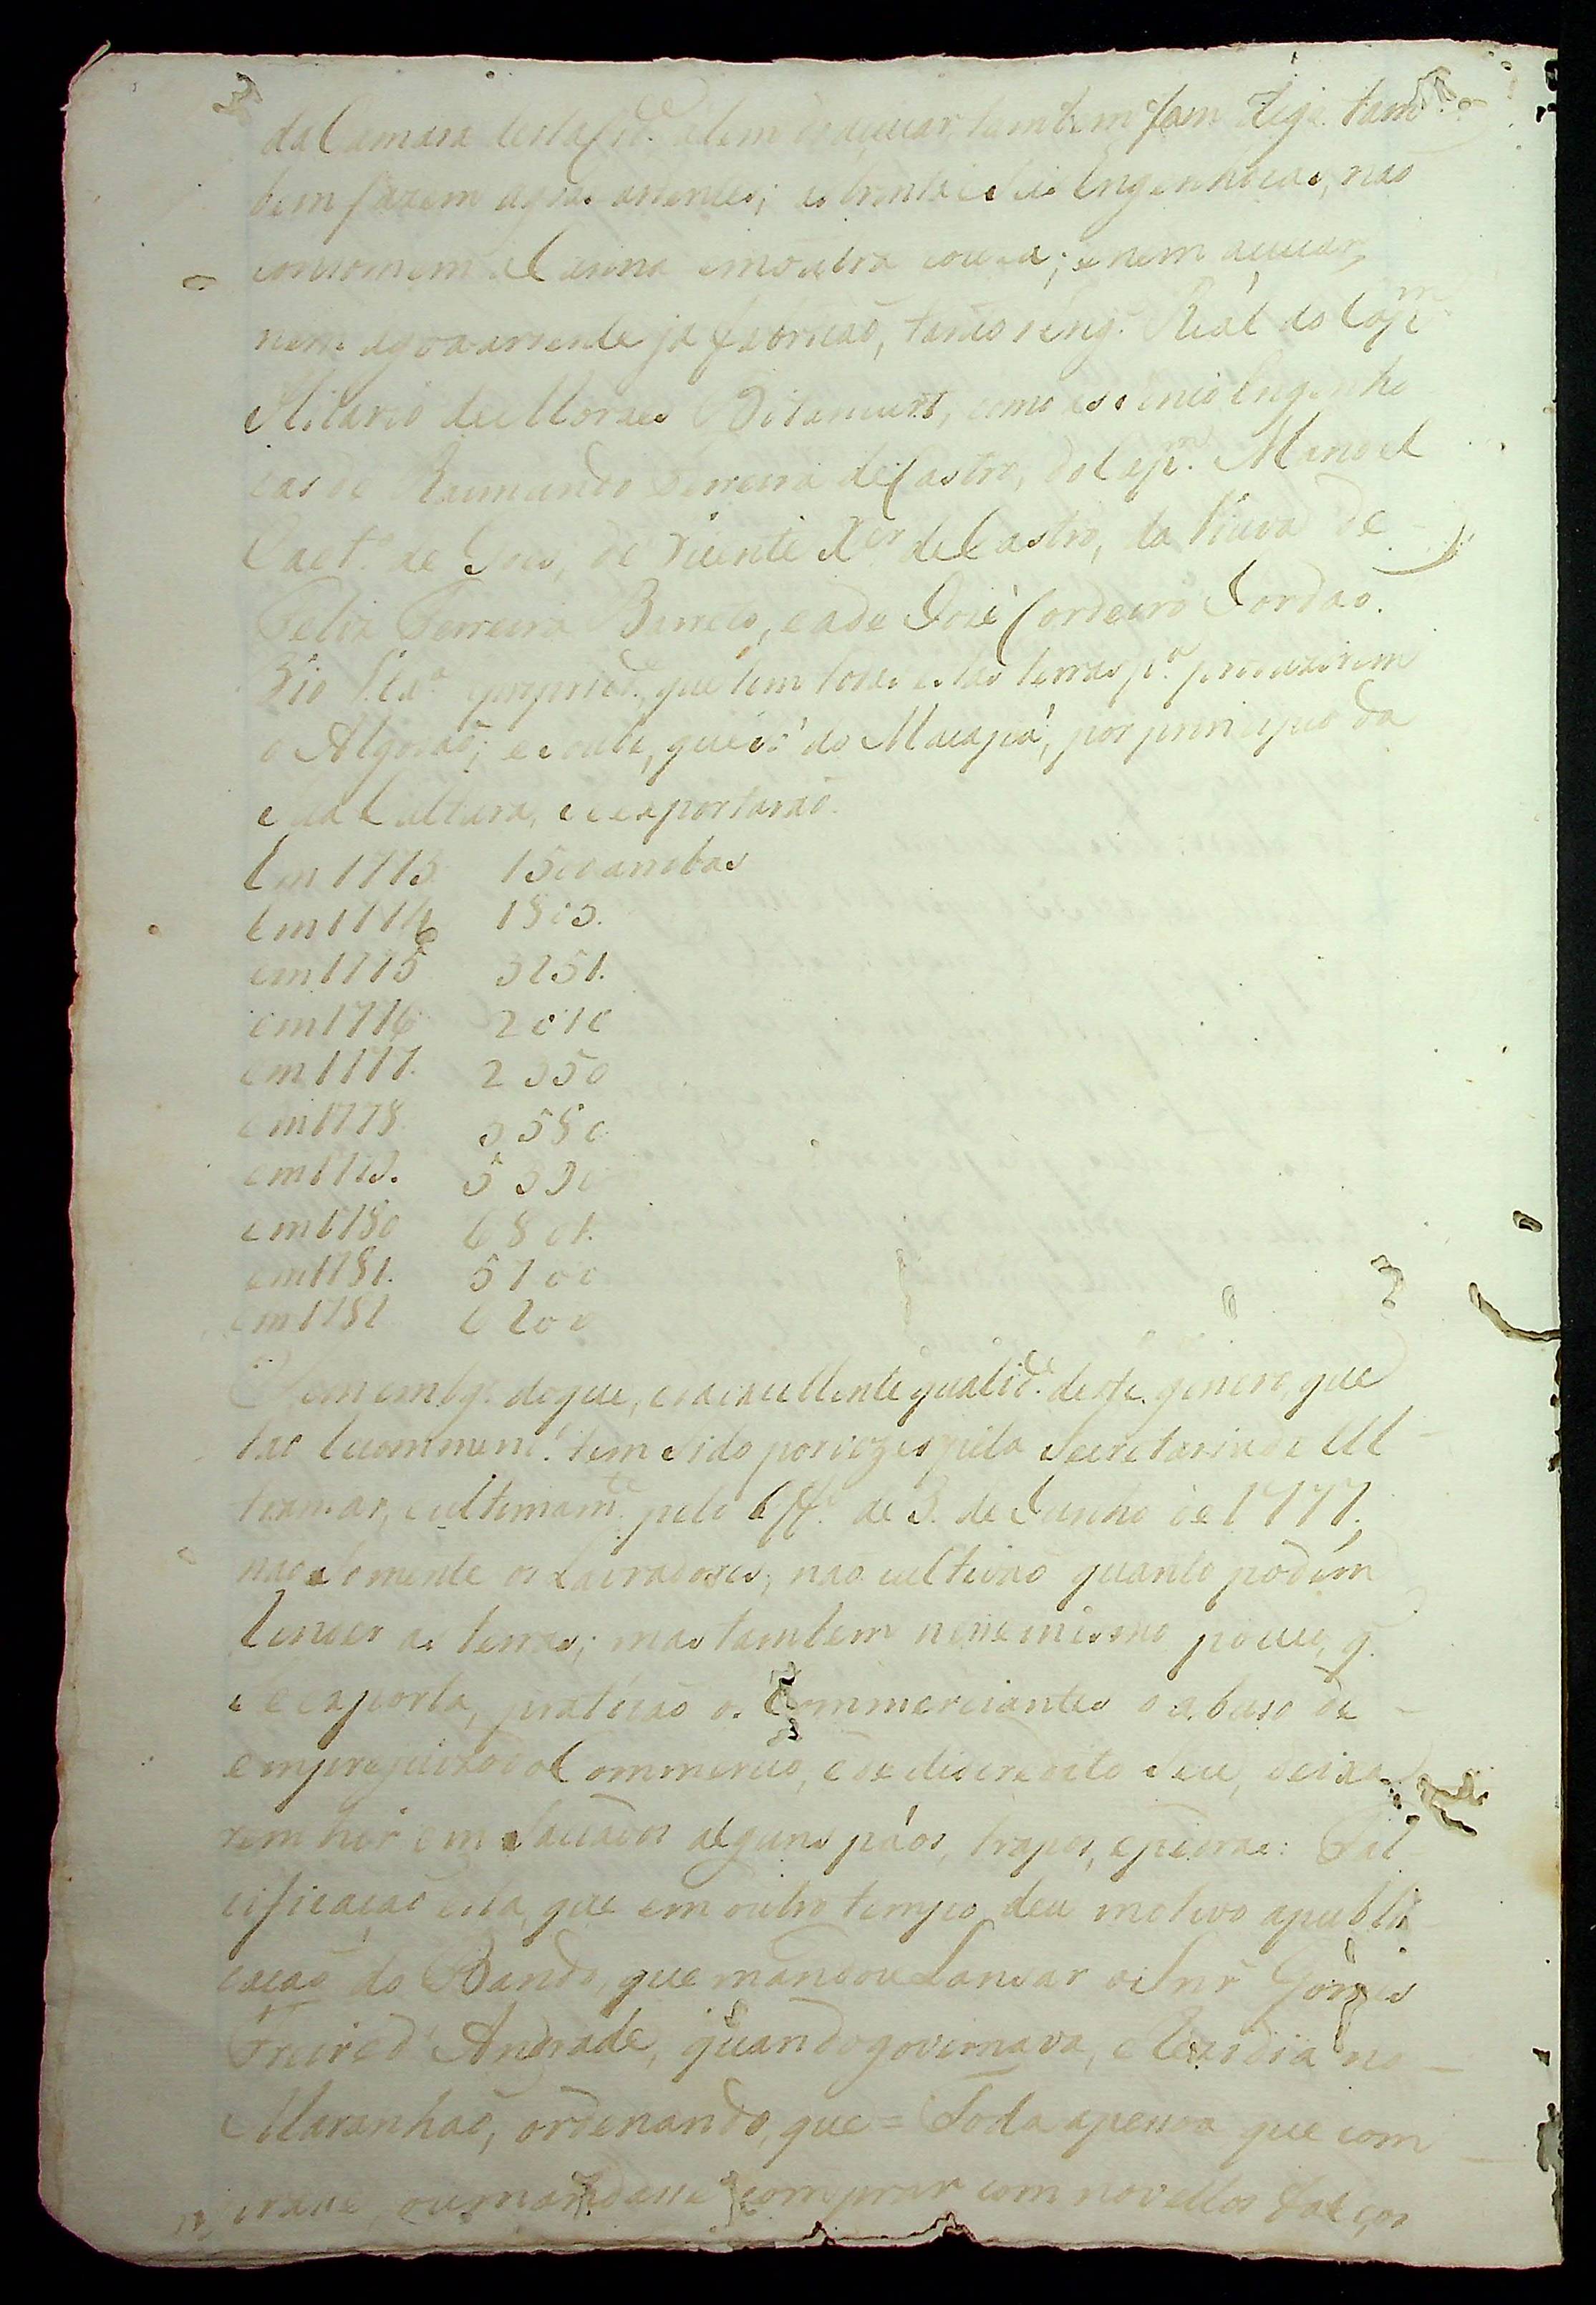 da Camara desta Cid.e alem do açucar, tambem
bem fazem agoas ardentes; as trinta e seis Engenhocas, não
consomem a Canna em outra couza; e nem açucar,
nem agoa ardente já fabricão, tanto o eng.o Real do Cap.m
Hilario de Moraes Bitancurt, como as cinco Engenho
cas de Raimundo Ferreira de Castro, do Cap.m Manoel
Caet.o de Goes, de Vicente X.er de Castro, da Viuva de
Felix Ferreira Barreto, e a de José Cordeiro Jordão.
que tem todas estas terras p.a produzirem
o Algodão; e soube, que só do Macapá, por principio da
sua Cultura, se exportarão.
Em 1773 1500 arrobas
Em 1774 1803.
em 1775 3251.
em 1776 2010
em 1777. 2350
em 1778 3580
em 1779. 5390
em 1780 6801.
em 1781. 5100
em 1782 6200
E sem emb.go do que, e da excellente qualid.e deste genero, que
tão recommend.o tem sido por vezes pela Secretaria de Ul
tramar, e ultimam.te pelo Off.o de 3. de Junho de 1777,
não somente os Lavradores, não cultivão quanto podem
render as terras; mas tambem nesse mesmo pouco, q.
se exporta, praticão os Commerciantes o abuso de
em prejuizo do Commercio, e de discredito seu, deixa
rem hir em sacados alguns páos, trapos, e pedras: Fal
cificação esta, que em outro tempo deu motivo a publi
cação do Bando, que mandou Lansar o Snr̃ Gomes
Freire d' Andrade, quando governava, e Rezidia no
Maranhão, ordenando, que = Toda a pessoa que com
prasse, ou mandasse comprar com novellos falços